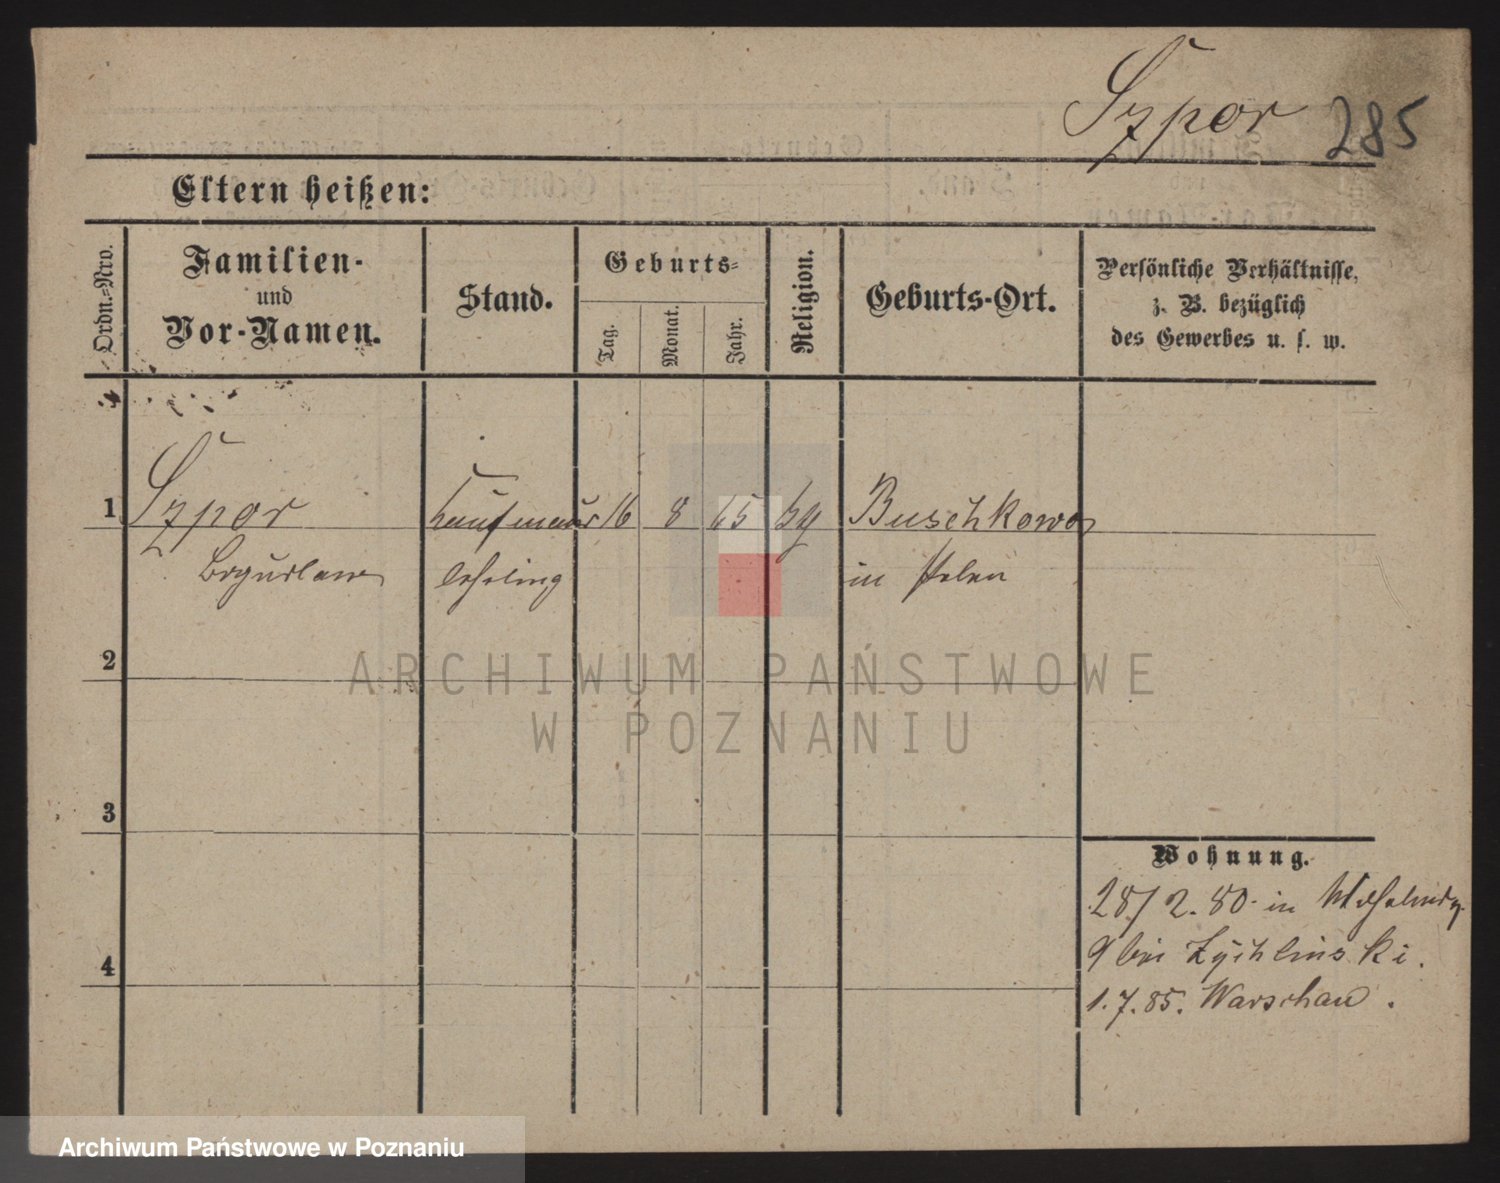 Szpor 285
Eltern heißen:
Ordn.-Nro.
Familien-
und
Vor-Namen.
Stand.
Geburts-
Tag.
Monat.
Jahr.
Religion.
Geburts-Ort.
Persönliche Verhältnisse,
z. B. bezüglich
des Gewerbes u. s. w.
1 Szpor Kaufmanns 16 8 65 Buschkowo
lehrling in Polen
2
3
4
ARCHIWUM PAŃSTWOWE
W POZNANIU
Wohnung.
28/2. 80. in
9 bei Zychlinski.
1.7.85. Warschau.
Archiwum Państwowe w Poznaniu